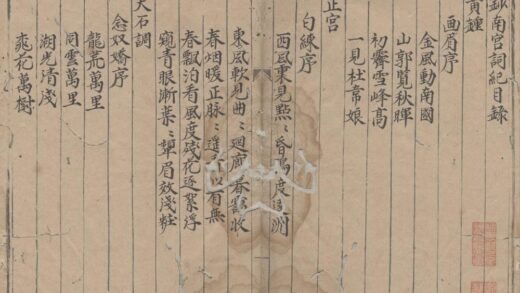 南宮詞紀目錄
黃鍾
画眉序
金風動南國
山郭覽秋暉
初霽雪峰高
一見杜韋娘
正宮
白練序
西風裏見點〻昏鴉度遠洲
東風軟見曲〻迴廊春霧收
春烟暖正脉〻遥看似有無
春飄泊看風度殘花逐絮浮
窺青眼漸葉〻顰眉效淺粧
大石調
念奴嬌序
龍荒萬里
同雲萬里
湖光清淺
桃花萬樹